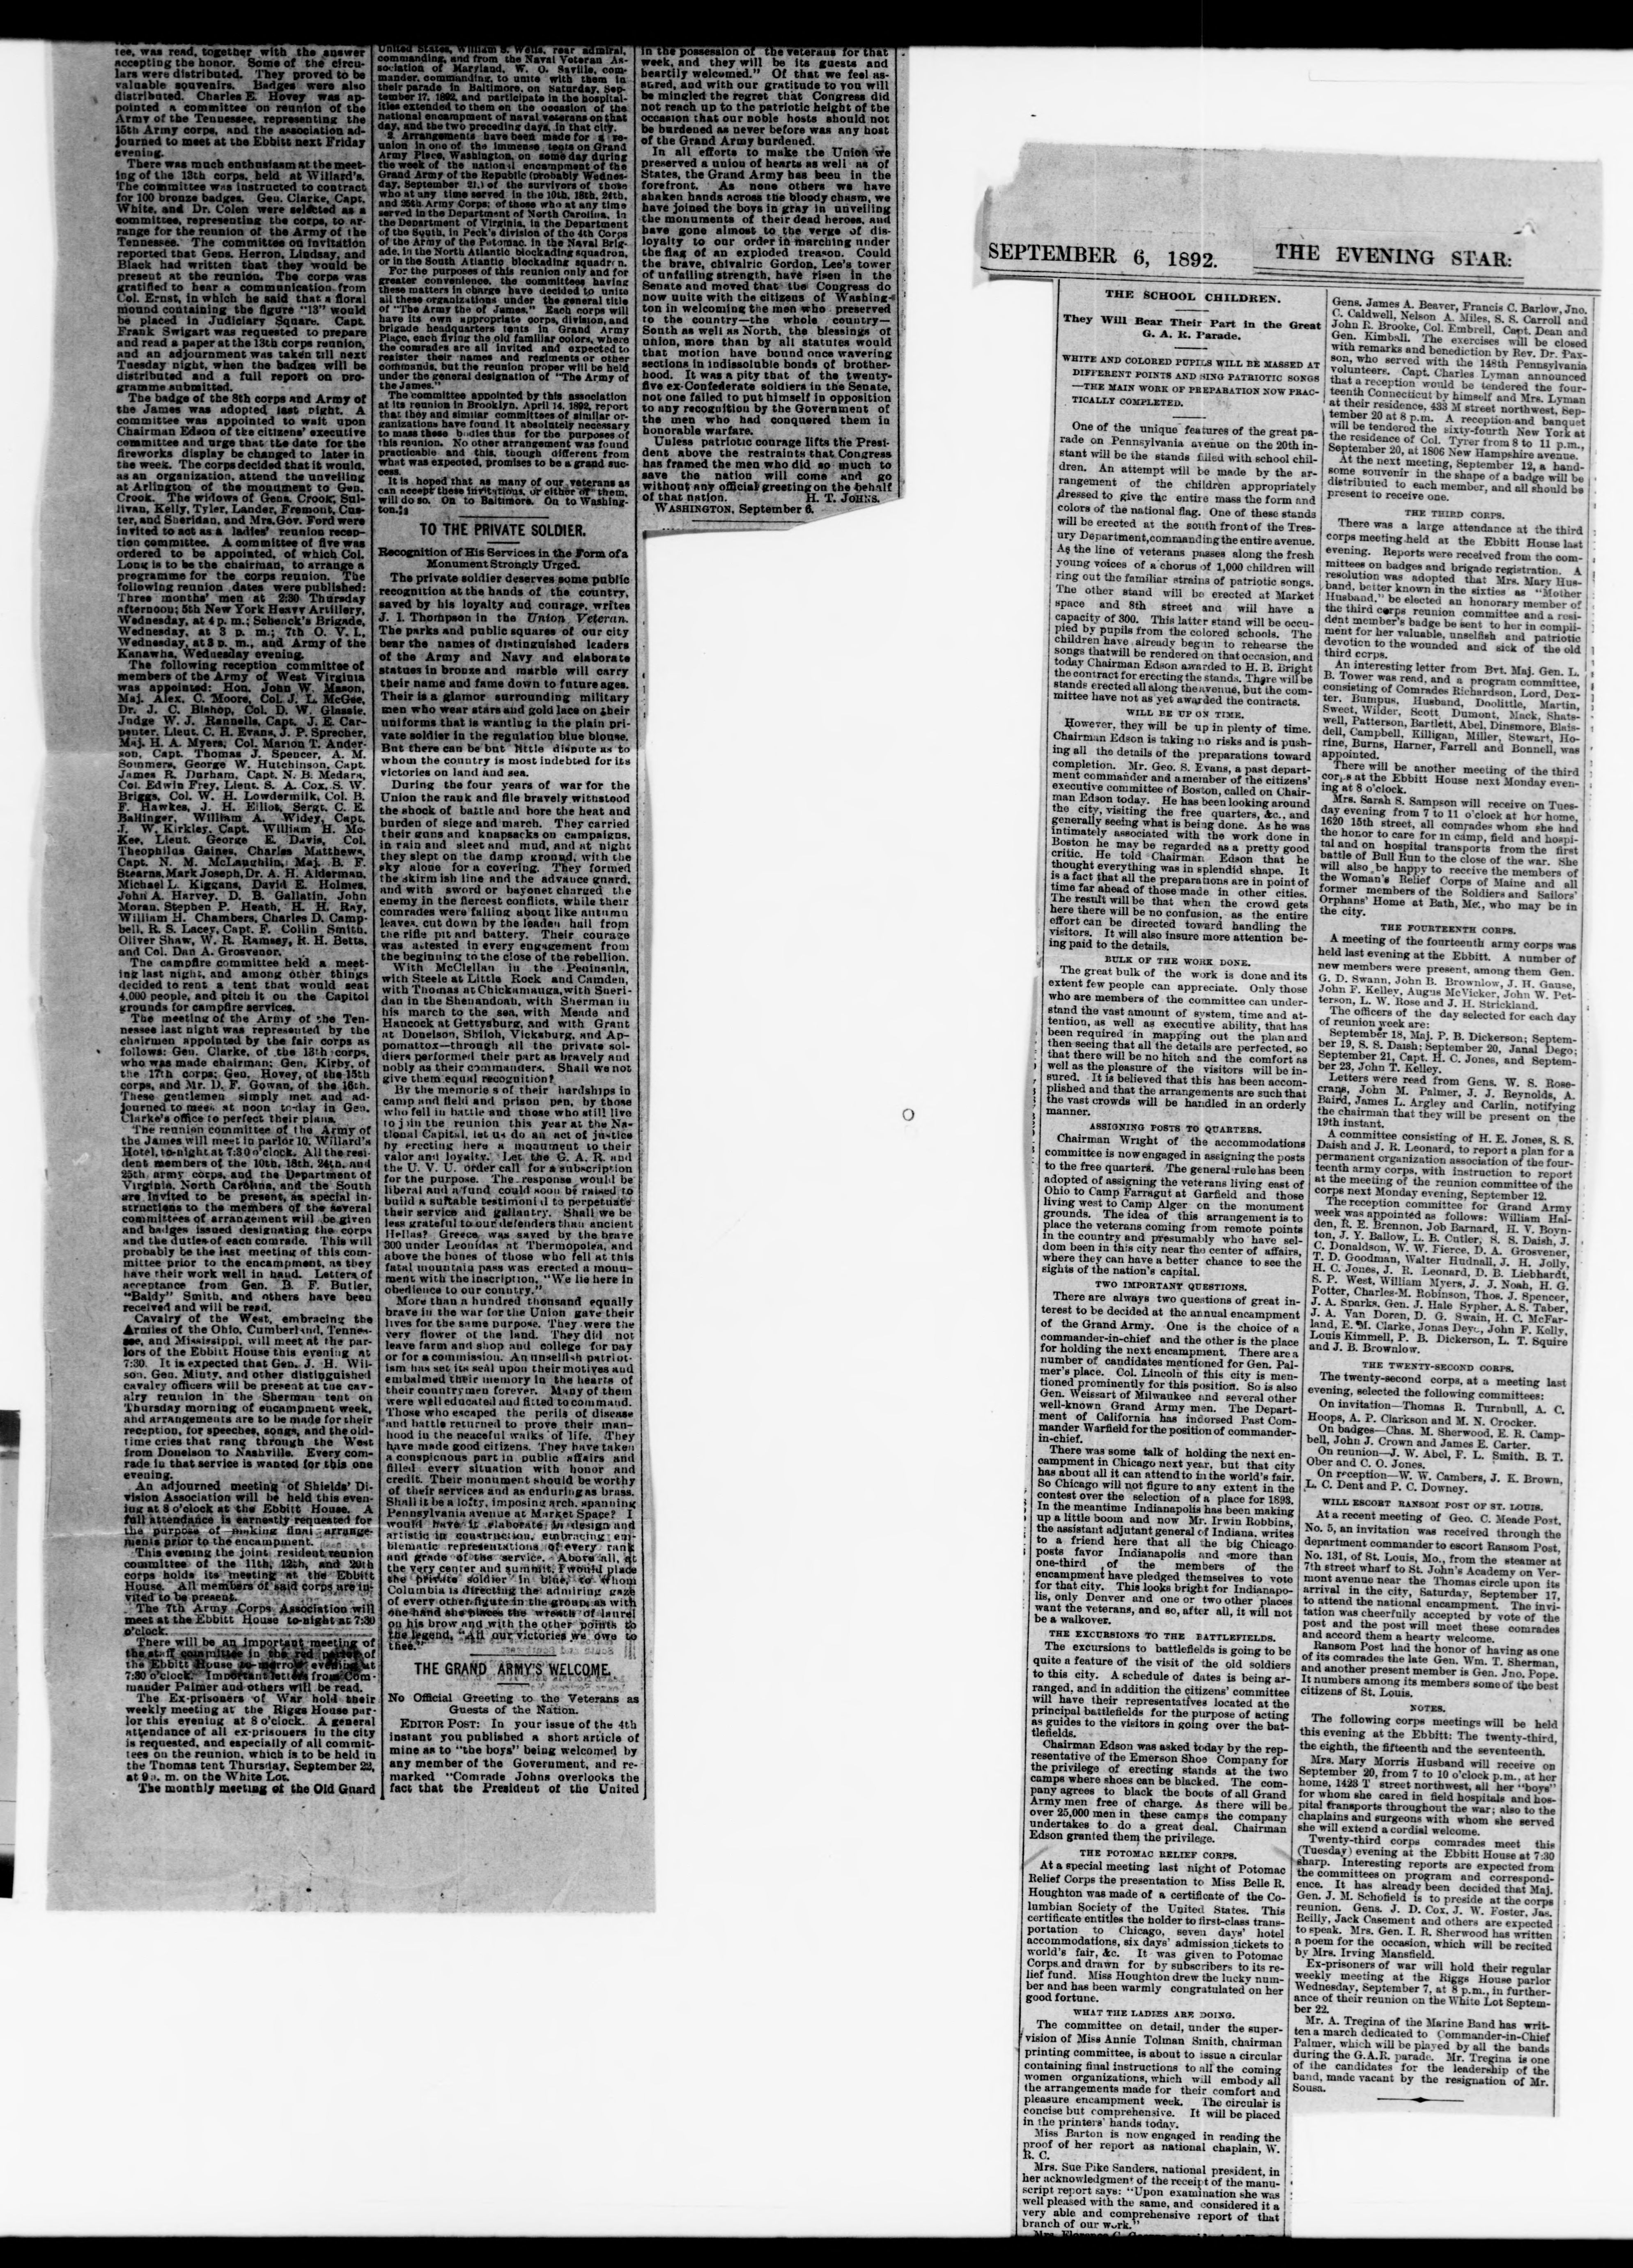 tee, was read, together with the answer
accepting the honor. Some of the circu-
lars were distributed. They proved to be
valuable souvenirs. Badges were also
distributed. Charles E. Hovey was ap-
pointed a committee on reunion of the
Army of the Tennessee, representing the
15th Army corps, and the association ad-
journed to meet at the Ebbitt next Friday
evening.
There was much enthusiasm at the meet-
ing of the 13th corps, held at Willard's.
The committee was instructed to contract
for 100 bronze badges. Gen. Clarke, Capt.
White, and Dr. Colen were selected as a
committee, representing the corps, to ar-
range for the reunion of the Army of the
Tennessee. The committee on invitation
reported that Gens. Herron, Lindsay, and
Black had written that they would be
present at the reunion. The corps was
gratified to hear a communication from
Col. Ernst, in which he said that a floral
mound containing the figure "13" would
be placed in Judiciary Square. Capt.
Frank Swigart was requested to prepare
and read a paper at the 13th corps reunion,
and an adjournment was taken till next
Tuesday night, when the badges will be
distributed and a full report on pro-
gramme submitted.
The badge of the 8th corps and Army of
the James was adopted last night. A
committee was appointed to wait upon
Chairman Edson of the citizens' executive
committee and urge that the date for the
fireworks display be changed to later in
the week. The corps decided that it would,
as an organization, attend the unveiling
at Arlington of the monument to Gen.
Crook. The widows of Gens. Crook, Sul-
livan, Kelly, Tyler, Lander, Fremont, Cus-
ter, and Sheridan, and Mrs. Gov. Ford were
invited to act as a ladies' reunion recep-
tion committee. A committee of five was
ordered to be appointed, of which Col.
Long is to be the chairman, to arrange a
programme for the corps reunion. The
following reunion dates were published:
Three months' men at 2:30 Thursday
afternoon; 5th New York Heavy Artillery,
Wednesday, at 4 p. m.; Schenck's Brigade,
Wednesday, at 3 p. m.; 7th O. V. I.,
Wednesday, at 8 p. m., and Army of the
Kanawha, Wednesday evening.
The following reception committee of
members of the Army of West Virginia
was appointed: Hon. John W. Mason,
Maj. Alex. C. Moore, Col. J. L. McGee,
Dr. J. C. Bishop, Col. D. W. Glassie,
Judge W. J. Rannells, Capt. J. E. Car-
penter, Lieut. C. H. Evans, J. P. Sprecher,
Maj. H. A. Myers, Col. Marion T. Ander-
son, Capt. Thomas J. Spencer, A. M.
Sommers, George W. Hutchinson, Capt.
James R. Durham, Capt. N. B. Medara,
Col. Edwin Frey, Lieut. S. A. Cox, S. W.
Briggs, Col. W. H. Lowdermilk, Col. B.
F. Hawkes, J. H. Elliot, Sergt. C. E.
Ballinger, William A. Widey, Capt.
J. W. Kirkley, Capt. William H. Mc-
Kee, Lieut. George E. Davis, Col.
Theophilus Gaines, Charles Matthews,
Capt. N. M. McLaughlin, Maj. B. F.
Stearns, Mark Joseph, Dr. A. H. Alderman,
Michael L. Kiggans, David E. Holmes,
John A. Harvey, D. B. Gallatin, John
Moran, Stephen P. Heath, H. H. Ray,
William H. Chambers, Charles D. Camp-
bell, R. S. Lacey, Capt. F. Collin Smith,
Oliver Shaw, W. R. Ramsey, R. H. Betts,
and Col. Dan A. Grosvenor.
The campfire committee held a meet-
ing last night, and among other things
decided to rent a tent that would seat
4,000 people, and pitch it on the Capitol
grounds for campfire services.
The meeting of the Army of the Ten-
nessee last night was represented by the
chairmen appointed by the fair corps as
follows: Gen. Clarke, of the 13th corps,
who was made chairman; Gen. Kirby, of
the 17th corps; Gen. Hovey, of the 15th
corps, and Mr. D. F. Gowan, of the 16th.
These gentlemen simply met and ad-
journed to meet at noon to-day in Gen.
Clarke's office to perfect their plans.
The reunion committee of the Army of
the James will meet in parlor 10, Willard's
Hotel, to-night at 7:30 o'clock. All the resi-
dent members of the 10th, 18th, 24th, and
25th army corps, and the Department of
Virginia, North Carolina, and the South
are invited to be present, as special in-
structions to the members of the several
committees of arrangement will be given
and badges issued designating the corps
and the duties of each comrade. This will
probably be the last meeting of this com-
mittee prior to the encampment, as they
have their work well in hand. Letters of
acceptance from Gen. B. F. Butler,
"Baldy" Smith, and others have been
received and will be read.
Cavalry of the West, embracing the
Armies of the Ohio, Cumberland, Tennes-
see, and Mississippi, will meet at the par-
lors of the Ebbitt House this evening at
7:30. It is expected that Gen. J. H. Wil-
son, Gen. Minty, and other distinguished
cavalry officers will be present at the cav-
alry reunion in the Sherman tent on
Thursday morning of encampment week,
and arrangements are to be made for their
reception, for speeches, songs, and the old-
time cries that rang through the West
from Donelson to Nashville. Every com-
rade in that service is wanted for this one
evening.
An adjourned meeting of Shields' Di-
vision Association will be held this even-
ing at 8 o'clock at the Ebbitt House. A
full attendance is earnestly requested for
the purpose of making final arrange-
ments prior to the encampment.
This evening the joint resident reunion
committee of the 11th, 12th, and 20th
corps holds its meeting at the Ebbitt
House. All members of said corps are in-
vited to be present.
The 7th Army Corps Association will
meet at the Ebbitt House to-night at 7:30
o'clock.
There will be an important meeting of
the staff committee in the red parlor of
the Ebbitt House to-morrow evening at
7:30 o'clock. Important letters from Com-
mander Palmer and others will be read.
The Ex-prisoners of War hold their
weekly meeting at the Riggs House par-
lor this evening at 8 o'clock. A general
attendance of all ex-prisoners in the city
is requested, and especially of all commit-
tees on the reunion, which is to be held in
the Thomas tent Thursday, September 22,
at 9 a. m. on the White Lot.
The monthly meeting of the Old Guard
United States, William S. Wells, rear admiral,
commanding, and from the Naval Veteran As-
sociation of Maryland, W. O. Saville, com-
mander, commanding, to unite with them in
their parade in Baltimore, on Saturday, Sep-
tember 17, 1892, and participate in the hospital-
ities extended to them on the occasion of the
national encampment of naval veterans on that
day, and the two preceding days, in that city.
2. Arrangements have been made for a re-
union in one of the immense tents on Grand
Army Place, Washington, on some day during
the week of the national encampment of the
Grand Army of the Republic (probably Wednes-
day, September 21,) of the survivors of those
who at any time served in the 10th, 18th, 24th,
and 25th Army Corps; of those who at any time
served in the Department of North Carolina, in
the Department of Virginia, in the Department
of the South, in Peck's division of the 4th Corps
of the Army of the Potomac, in the Naval Brig-
ade, in the North Atlantic blockading squadron,
or in the South Atlantic blockading squadron.
For the purposes of this reunion only and for
greater convenience, the committees having
these matters in charge have decided to unite
all these organizations under the general title
of "The Army of the James." Each corps will
have its own appropriate corps, division, and
brigade headquarters tents in Grand Army
Place, each flying the old familiar colors, where
the comrades are all invited and expected to
register their names and regiments or other
commands, but the reunion proper will be held
under the general designation of "The Army of
the James."
The committee appointed by this association
at its reunion in Brooklyn, April 14, 1892, report
that they and similar committees of similar or-
ganizations have found it absolutely necessary
to mass these bodies thus for the purposes of
this reunion. No other arrangement was found
practicable and this, though different from
what was expected, promises to be a grand suc-
cess.
It is hoped that as many of our veterans as
can accept these invitations, or either of them,
will do so. On to Baltimore. On to Washing-
ton.
TO THE PRIVATE SOLDIER.
Recognition of His Services in the Form of a
Monument Strongly Urged.
The private soldier deserves some public
recognition at the hands of the country,
saved by his loyalty and courage, writes
J. I. Thompson in the Union Veteran.
The parks and public squares of our city
bear the names of distinguished leaders
of the Army and Navy and elaborate
statues in bronze and marble will carry
their name and fame down to future ages.
Their is a glamor surrounding military
men who wear stars and gold lace on their
uniforms that is wanting in the plain pri-
vate soldier in the regulation blue blouse.
But there can be but little dispute as to
whom the country is most indebted for its
victories on land and sea.
During the four years of war for the
Union the rank and file bravely withstood
the shock of battle and bore the heat and
burden of siege and march. They carried
their guns and knapsacks on campaigns,
in rain and sleet and mud, and at night
they slept on the damp ground, with the
sky alone for a covering. They formed
the skirmish line and the advance guard,
and with sword or bayonet charged the
enemy in the fiercest conflicts, while their
comrades were falling about like autumn
leaves, cut down by the leaden hail from
the rifle pit and battery. Their courage
was attested in every engagement from
the beginning to the close of the rebellion.
With McClellan in the Peninsula,
with Steele at Little Rock and Camden,
with Thomas at Chickamauga, with Sheri-
dan in the Shenandoah, with Sherman in
his march to the sea, with Meade and
Hancock at Gettysburg, and with Grant
at Donelson, Shiloh, Vicksburg, and Ap-
pomattox—through all the private sol-
diers performed their part as bravely and
nobly as their commanders. Shall we not
give them equal recognition?
By the memories of their hardships in
camp and field and prison pen, by those
who fell in battle and those who still live
to join the reunion this year at the Na-
tional Capital, let us do an act of justice
by erecting here a monument to their
valor and loyalty. Let the G. A. R. and
the U. V. U. order call for a subscription
for the purpose. The response would be
liberal and a fund could soon be raised to
build a suitable testimonial to perpetuate
their service and gallantry. Shall we be
less grateful to our defenders than ancient
Hellas? Greece was saved by the brave
300 under Leonidas at Thermopolea, and
above the bones of those who fell at this
fatal mountain pass was erected a monu-
ment with the inscription, "We lie here in
obedience to our country."
More than a hundred thousand equally
brave in the war for the Union gave their
lives for the same purpose. They were the
very flower of the land. They did not
leave farm and shop and college for pay
or for a commission. An unselfish patriot-
ism has set its seal upon their motives and
embalmed their memory in the hearts of
their countrymen forever. Many of them
were well educated and fitted to command.
Those who escaped the perils of disease
and battle returned to prove their man-
hood in the peaceful walks of life. They
have made good citizens. They have taken
a conspicuous part in public affairs and
filled every situation with honor and
credit. Their monument should be worthy
of their services and as enduring as brass.
Shall it be a lofty, imposing arch, spanning
Pennsylvania avenue at Market Space? I
would have it elaborate in design and
artistic in construction, embracing em-
blematic representations of every rank
and grade of the service. Above all, at
the very center and summit, I would place
the private soldier in blue, to whom
Columbia is directing the admiring gaze
of every other figure in the group, as with
one hand she places the wreath of laurel
on his brow and with the other points to
the legend, "All our victories we owe to
thee."
THE GRAND ARMY'S WELCOME.
No Official Greeting to the Veterans as
Guests of the Nation.
EDITOR POST: In your issue of the 4th
instant you published a short article of
mine as to "the boys" being welcomed by
any member of the Government, and re-
marked "Comrade Johns overlooks the
fact that the President of the United
in the possession of the veterans for that
week, and they will be its guests and
heartily welcomed." Of that we feel as-
sured, and with our gratitude to you will
be mingled the regret that Congress did
not reach up to the patriotic height of the
occasion that our noble hosts should not
be burdened as never before was any host
of the Grand Army burdened.
In all efforts to make the Union we
preserved a union of hearts as well as of
States, the Grand Army has been in the
forefront. As none others we have
shaken hands across the bloody chasm, we
have joined the boys in gray in unveiling
the monuments of their dead heroes, and
have gone almost to the verge of dis-
loyalty to our order in marching under
the flag of an exploded treason. Could
the brave, chivalric Gordon, Lee's tower
of unfailing strength, have risen in the
Senate and moved that the Congress do
now unite with the citizens of Washing-
ton in welcoming the men who preserved
to the country—the whole country—
South as well as North, the blessings of
union, more than by all statutes would
that motion have bound once wavering
sections in indissoluble bonds of brother-
hood. It was a pity that of the twenty-
five ex-Confederate soldiers in the Senate,
not one failed to put himself in opposition
to any recognition by the Government of
the men who had conquered them in
honorable warfare.
Unless patriotic courage lifts the Presi-
dent above the restraints that Congress
has framed the men who did so much to
save the nation will come and go
without any official greeting on the behalf
of that nation. H. T. JOHNS.
WASHINGTON, September 6.
SEPTEMBER 6, 1892. THE EVENING STAR:
THE SCHOOL CHILDREN.
They Will Bear Their Part in the Great
G. A. R. Parade.
WHITE AND COLORED PUPILS WILL BE MASSED AT
DIFFERENT POINTS AND SING PATRIOTIC SONGS
—THE MAIN WORK OF PREPARATION NOW PRAC-
TICALLY COMPLETED.
One of the unique features of the great pa-
rade on Pennsylvania avenue on the 20th in-
stant will be the stands filled with school chil-
dren. An attempt will be made by the ar-
rangement of the children appropriately
dressed to give the entire mass the form and
colors of the national flag. One of these stands
will be erected at the south front of the Tres-
ury Department, commanding the entire avenue.
As the line of veterans passes along the fresh
young voices of a chorus of 1,000 children will
ring out the familiar strains of patriotic songs.
The other stand will be erected at Market
space and 8th street and will have a
capacity of 300. This latter stand will be occu-
pied by pupils from the colored schools. The
children have already begun to rehearse the
songs that will be rendered on that occasion, and
today Chairman Edson awarded to H. B. Bright
the contract for erecting the stands. There will be
stands erected all along the avenue, but the com-
mittee have not as yet awarded the contracts.
WILL BE UP ON TIME.
However, they will be up in plenty of time.
Chairman Edson is taking no risks and is push-
ing all the details of the preparations toward
completion. Mr. Geo. S. Evans, a past depart-
ment commander and a member of the citizens'
executive committee of Boston, called on Chair-
man Edson today. He has been looking around
the city, visiting the free quarters, &c., and
generally seeing what is being done. As he was
intimately associated with the work done in
Boston he may be regarded as a pretty good
critic. He told Chairman Edson that he
thought everything was in splendid shape. It
is a fact that all the preparations are in point of
time far ahead of those made in other cities.
The result will be that when the crowd gets
here there will be no confusion, as the entire
effort can be directed toward handling the
visitors. It will also insure more attention be-
ing paid to the details.
BULK OF THE WORK DONE.
The great bulk of the work is done and its
extent few people can appreciate. Only those
who are members of the committee can under-
stand the vast amount of system, time and at-
tention, as well as executive ability, that has
been required in mapping out the plan and
then seeing that all the details are perfected, so
that there will be no hitch and the comfort as
well as the pleasure of the visitors will be in-
sured. It is believed that this has been accom-
plished and that the arrangements are such that
the vast crowds will be handled in an orderly
manner.
ASSIGNING POSTS TO QUARTERS.
Chairman Wright of the accommodations
committee is now engaged in assigning the posts
to the free quarters. The general rule has been
adopted of assigning the veterans living east of
Ohio to Camp Farragut at Garfield and those
living west to Camp Alger on the monument
grounds. The idea of this arrangement is to
place the veterans coming from remote points
in the country and presumably who have sel-
dom been in this city near the center of affairs,
where they can have a better chance to see the
sights of the nation's capital.
TWO IMPORTANT QUESTIONS.
There are always two questions of great in-
terest to be decided at the annual encampment
of the Grand Army. One is the choice of a
commander-in-chief and the other is the place
for holding the next encampment. There are a
number of candidates mentioned for Gen. Pal-
mer's place. Col. Lincoln of this city is men-
tioned prominently for this position. So is also
Gen. Weissart of Milwaukee and several other
well-known Grand Army men. The Depart-
ment of California has indorsed Past Com-
mander Warfield for the position of commander-
in-chief.
There was some talk of holding the next en-
campment in Chicago next year, but that city
has about all it can attend to in the world's fair.
So Chicago will not figure to any extent in the
contest over the selection of a place for 1893.
In the meantime Indianapolis has been making
up a little boom and now Mr. Irwin Robbins,
the assistant adjutant general of Indiana, writes
to a friend here that all the big Chicago
posts favor Indianapolis and more than
one-third of the members of the
encampment have pledged themselves to vote
for that city. This looks bright for Indianapo-
lis, only Denver and one or two other places
want the veterans, and so, after all, it will not
be a walkover.
THE EXCURSIONS TO THE BATTLEFIELDS.
The excursions to battlefields is going to be
quite a feature of the visit of the old soldiers
to this city. A schedule of dates is being ar-
ranged, and in addition the citizens' committee
will have their representatives located at the
principal battlefields for the purpose of acting
as guides to the visitors in going over the bat-
tlefields.
Chairman Edson was asked today by the rep-
resentative of the Emerson Shoe Company for
the privilege of erecting stands at the two
camps where shoes can be blacked. The com-
pany agrees to black the boots of all Grand
Army men free of charge. As there will be
over 25,000 men in these camps the company
undertakes to do a great deal. Chairman
Edson granted them the privilege.
THE POTOMAC RELIEF CORPS.
At a special meeting last night of Potomac
Relief Corps the presentation to Miss Belle R.
Houghton was made of a certificate of the Co-
lumbian Society of the United States. This
certificate entitles the holder to first-class trans-
portation to Chicago, seven days' hotel
accommodations, six days' admission tickets to
world's fair, &c. It was given to Potomac
Corps and drawn for by subscribers to its re-
lief fund. Miss Houghton drew the lucky num-
ber and has been warmly congratulated on her
good fortune.
WHAT THE LADIES ARE DOING.
The committee on detail, under the super-
vision of Miss Annie Tolman Smith, chairman
printing committee, is about to issue a circular
containing final instructions to all the coming
women organizations, which will embody all
the arrangements made for their comfort and
pleasure encampment week. The circular is
concise but comprehensive. It will be placed
in the printers' hands today.
Miss Barton is now engaged in reading the
proof of her report as national chaplain, W.
R. C.
Mrs. Sue Pike Sanders, national president, in
her acknowledgment of the receipt of the manu-
script report says: "Upon examination she was
well pleased with the same, and considered it a
very able and comprehensive report of that
branch of our work."
Gens. James A. Beaver, Francis C. Barlow, Jno.
C. Caldwell, Nelson A. Miles, S. S. Carroll and
John R. Brooke, Col. Embrell, Capt. Dean and
Gen. Kimball. The exercises will be closed
with remarks and benediction by Rev. Dr. Pax-
son, who served with the 148th Pennsylvania
volunteers. Capt. Charles Lyman announced
that a reception would be tendered the four-
teenth Connecticut by himself and Mrs. Lyman
at their residence, 433 M street northwest, Sep-
tember 20 at 8 p.m. A reception and banquet
will be tendered the sixty-fourth New York at
the residence of Col. Tyrer from 8 to 11 p.m.,
September 20, at 1806 New Hampshire avenue.
At the next meeting, September 12, a hand-
some souvenir in the shape of a badge will be
distributed to each member, and all should be
present to receive one.
THE THIRD CORPS.
There was a large attendance at the third
corps meeting held at the Ebbitt House last
evening. Reports were received from the com-
mittees on badges and brigade registration. A
resolution was adopted that Mrs. Mary Hus-
band, better known in the sixties as "Mother
Husband," be elected an honorary member of
the third corps reunion committee and a resi-
dent member's badge be sent to her in compli-
ment for her valuable, unselfish and patriotic
devotion to the wounded and sick of the old
third corps.
An interesting letter from Bvt. Maj. Gen. L.
B. Tower was read, and a program committee,
consisting of Comrades Richardson, Lord, Dex-
ter, Bumpus, Husband, Doolittle, Martin,
Sweet, Wilder, Scott, Dumont, Mack, Shats-
well, Patterson, Bartlett, Abel, Dinsmore, Blais-
dell, Campbell, Killigan, Miller, Stewart, Ho-
rine, Burns, Harner, Farrell and Bonnell, was
appointed.
There will be another meeting of the third
corps at the Ebbitt House next Monday even-
ing at 8 o'clock.
Mrs. Sarah S. Sampson will receive on Tues-
day evening from 7 to 11 o'clock at her home,
1620 15th street, all comrades whom she had
the honor to care for in camp, field and hospi-
tal and on hospital transports from the first
battle of Bull Run to the close of the war. She
will also be happy to receive the members of
the Woman's Relief Corps of Maine and all
former members of the Soldiers and Sailors'
Orphans' Home at Bath, Me., who may be in
the city.
THE FOURTEENTH CORPS.
A meeting of the fourteenth army corps was
held last evening at the Ebbitt. A number of
new members were present, among them Gen.
G. D. Swann, John B. Brownlow, J. H. Gause,
John F. Kelley, Augus McVicker, John W. Pet-
terson, L. W. Rose and J. H. Strickland.
The officers of the day selected for each day
of reunion week are:
September 18, Maj. P. B. Dickerson; Septem-
ber 19, S. S. Daish; September 20, Janal Dego;
September 21, Capt. H. C. Jones, and Septem-
ber 23, John T. Kelley.
Letters were read from Gens. W. S. Rose-
crans, John M. Palmer, J. J. Reynolds, A.
Baird, James L. Argley and Carlin, notifying
the chairman that they will be present on the
19th instant.
A committee consisting of H. E. Jones, S. S.
Daish and J. R. Leonard, to report a plan for a
permanent organization association of the four-
teenth army corps, with instruction to report
at the meeting of the reunion committee of the
corps next Monday evening, September 12.
The reception committee for Grand Army
week was appointed as follows: William Hal-
den, R. E. Brennon, Job Barnard, H. V. Boyn-
ton, J. Y. Ballow, L. B. Cutler, S. S. Daish, J.
C. Donaldson, W. W. Fierce, D. A. Grosvener,
T. D. Goodman, Walter Hudnall, J. H. Jolly,
H. C. Jones, J. R. Leonard, D. B. Liebhardt,
S. P. West, William Myers, J. J. Noah, H. G.
Potter, Charles M. Robinson, Thos. J. Spencer,
J. A. Sparks, Gen. J. Hale Sypher, A. S. Taber,
J. A. Van Doren, D. G. Swain, H. C. McFar-
land, E. M. Clarke, Jonas Deyc, John F. Kelly,
Louis Kimmell, P. B. Dickerson, L. T. Squire
and J. B. Brownlow.
THE TWENTY-SECOND CORPS.
The twenty-second corps, at a meeting last
evening, selected the following committees:
On invitation—Thomas R. Turnbull, A. C.
Hoops, A. P. Clarkson and M. N. Crocker.
On badges—Chas. M. Sherwood, E. R. Camp-
bell, John J. Crown and James E. Carter.
On reunion—J. W. Abel, F. L. Smith, B. T.
Ober and C. O. Jones.
On reception—W. W. Cambers, J. K. Brown,
L. C. Dent and P. C. Downey.
WILL ESCORT RANSOM POST OF ST. LOUIS.
At a recent meeting of Geo. C. Meade Post,
No. 5, an invitation was received through the
department commander to escort Ransom Post,
No. 131, of St. Louis, Mo., from the steamer at
7th street wharf to St. John's Academy on Ver-
mont avenue near the Thomas circle upon its
arrival in the city, Saturday, September 17,
to attend the national encampment. The invi-
tation was cheerfully accepted by vote of the
post and the post will meet these comrades
and accord them a hearty welcome.
Ransom Post had the honor of having as one
of its comrades the late Gen. Wm. T. Sherman,
and another present member is Gen. Jno. Pope.
It numbers among its members some of the best
citizens of St. Louis.
NOTES.
The following corps meetings will be held
this evening at the Ebbitt: The twenty-third,
the eighth, the fifteenth and the seventeenth.
Mrs. Mary Morris Husband will receive on
September 20, from 7 to 10 o'clock p.m., at her
home, 1423 T street northwest, all her "boys"
for whom she cared in field hospitals and hos-
pital transports throughout the war; also to the
chaplains and surgeons with whom she served
she will extend a cordial welcome.
Twenty-third corps comrades meet this
(Tuesday) evening at the Ebbitt House at 7:30
sharp. Interesting reports are expected from
the committees on program and correspond-
ence. It has already been decided that Maj.
Gen. J. M. Schofield is to preside at the corps
reunion. Gens. J. D. Cox, J. W. Foster, Jas.
Reilly, Jack Casement and others are expected
to speak. Mrs. Gen. I. R. Sherwood has written
a poem for the occasion, which will be recited
by Mrs. Irving Mansfield.
Ex-prisoners of war will hold their regular
weekly meeting at the Riggs House parlor
Wednesday, September 7, at 8 p.m., in further-
ance of their reunion on the White Lot Septem-
ber 22.
Mr. A. Tregina of the Marine Band has writ-
ten a march dedicated to Commander-in-Chief
Palmer, which will be played by all the bands
during the G.A.R. parade. Mr. Tregina is one
of the candidates for the leadership of the
band, made vacant by the resignation of Mr.
Sousa.